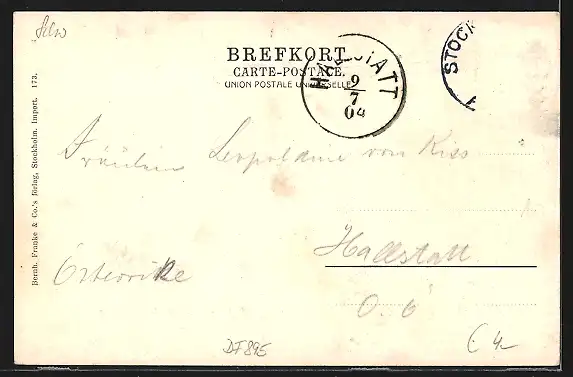 BREFKORT
CARTE-POSTALE.
UNION POSTALE UNIVERSELLE
HALLSTATT
9
7
04
STOCK
Bernh. Franke & Co:s förlag, Stockholm. Import. 173.
Fräulein Leopoldine von Kiss
Hallstatt
Österrike
O. Ö
DF895